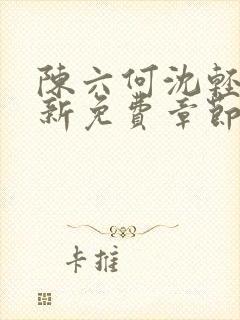 陳六何沈輕
新免費章節
卡推